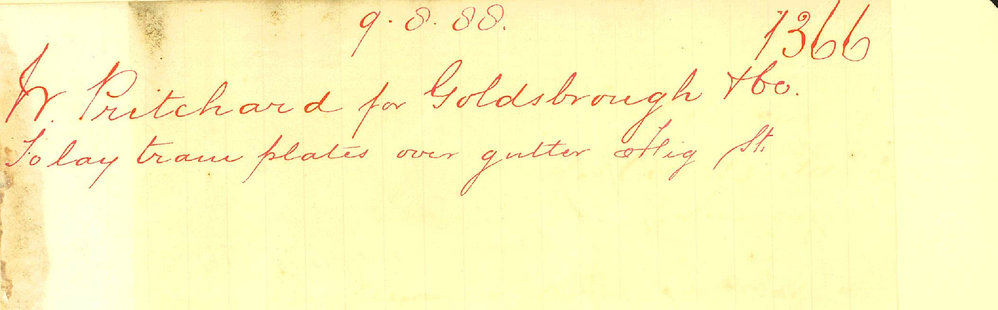 9.8.88.
1366
W. Pritchard for Goldsbrough & Co.
To lay tram plates over gutter St.